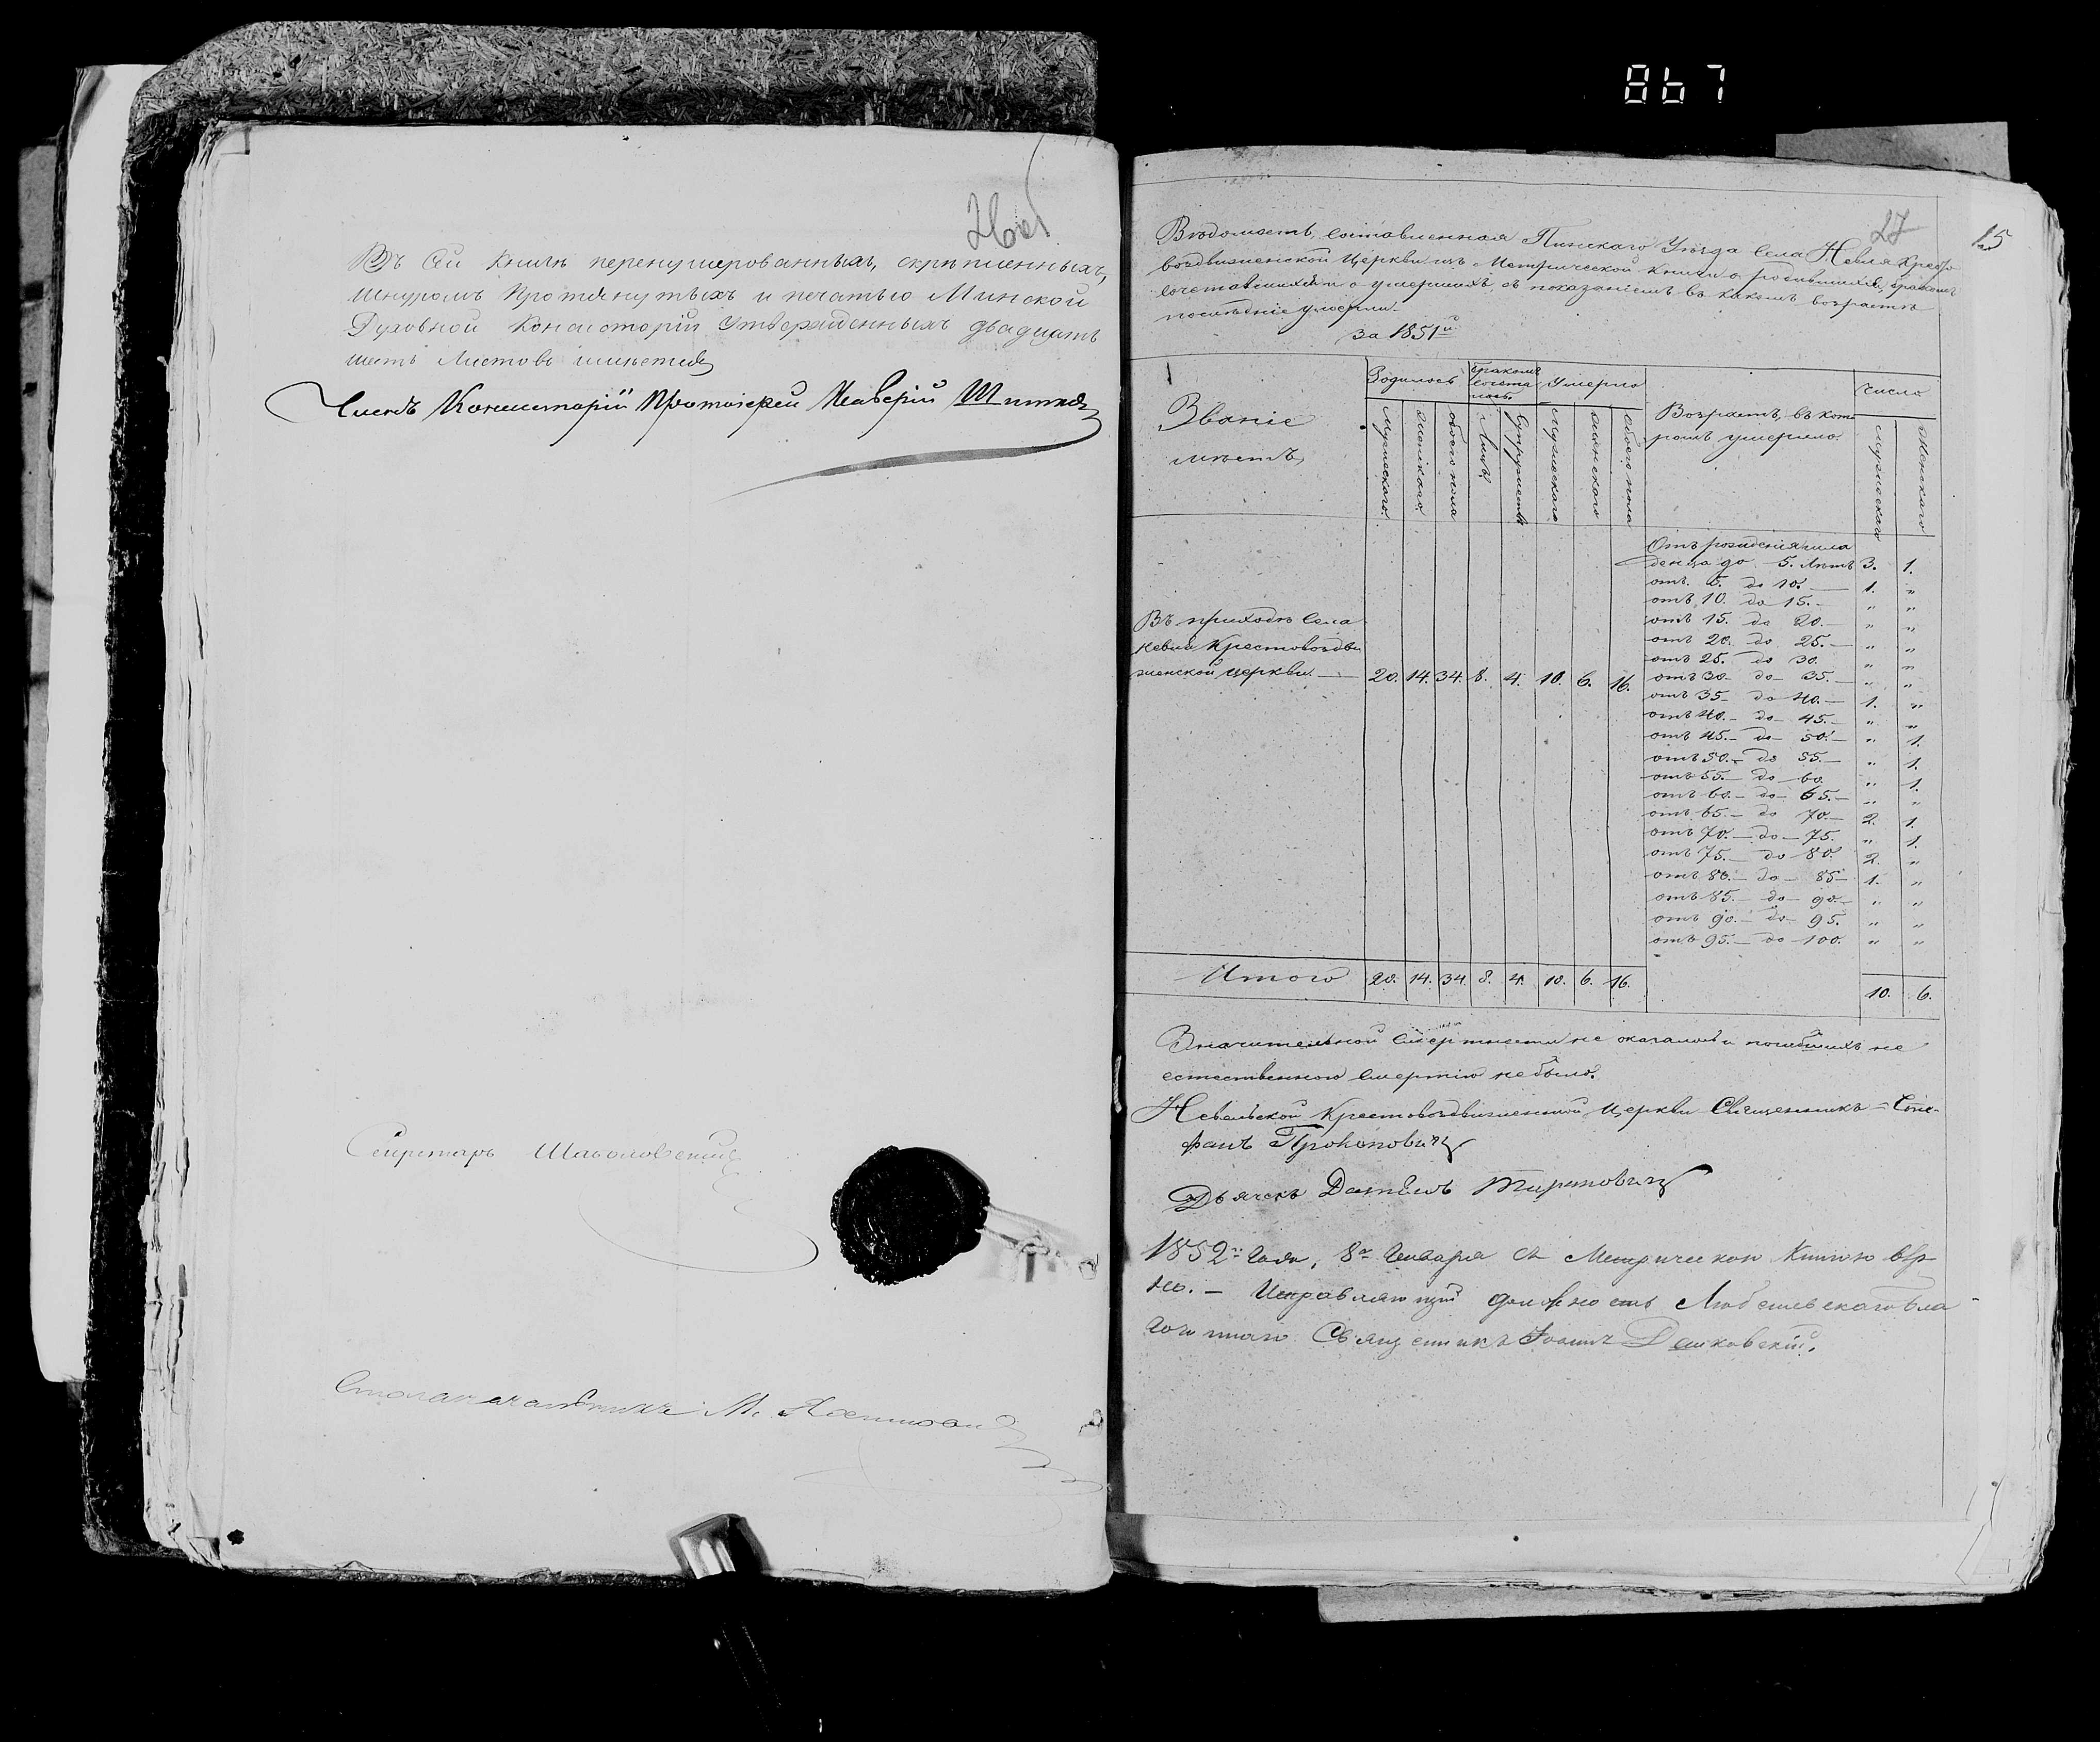 867
26 об
Въ сей книгѣ перенумерованныхъ, скрѣпленныхъ,
шнуромъ протянутыхъ и печатью Минской
Духовной Консисторіи утвержденныхъ двадцать
шесть листовъ имѣется
Членъ Консисторіи Протоіерей
Секретарь
Столоначальникъ М.
27
15
Вѣдомость, составленная Пинскаго Уѣзда села Невля Кресто
воздвиженской Церкви изъ Метрической книги о родившихся, бракомъ
сочетавшихся и о умершихъ, съ показаніемъ въ какомъ возрастѣ
послѣдніе умерли.
за 1851й
Званіе
мѣстъ
Родилось
Бракомъ
сочета
лось
Умерло
Возрастъ, въ кото
ромъ умерло.
Число
Мужескаго.
Женскаго.
обоего пола
Лицъ
Супружествъ
Мужескаго
Женскаго
обоего пола
Мужескаго
Женскаго
Отъ рожденія мла
денца до 5. лѣтъ 3. 1.
отъ 5. до 10. — 1. „
отъ 10. до 15. — „ „
отъ 15. до 20. — „ „
отъ 20. до 25. — „ „
отъ 25. до 30. „ „
отъ 30 до 35. — „ „
отъ 35 до 40. — 1. „
отъ 40. до 45. — „ „
отъ 45. до 50. — „ 1.
отъ 50. до 55. — „ 1.
отъ 55. до 60. „ 1.
отъ 60. до 65. — „ „
отъ 65. до 70. — 2. 1.
отъ 70. до 75. „ 1.
отъ 75. до 80. 2. „
отъ 80. до 85 — 1. „
отъ 85. до 90. — „ „
отъ 90. до 95. „ „
отъ 95. до 100. „ „
Въ приходѣ села
Невля Крестовоздви
женской церкви. — 20. 14. 34. 8. 4. 10. 6. 16.
Итого 20. 14. 34. 8. 4. 10. 6. 16.
10. 6.
Значительной смертности не оказалось и погибшихъ не
естественною смертію не было.
Невельской Крестовоздвиженской Церкви Священникъ Сте-
фанъ Прокоповичъ
Дьячекъ
1852го года, 8го Января съ Метрическою Книгою вѣр
но. — Исправляющій должность Любешевскаго Бла
гочиннаго Священникъ Іоаннъ